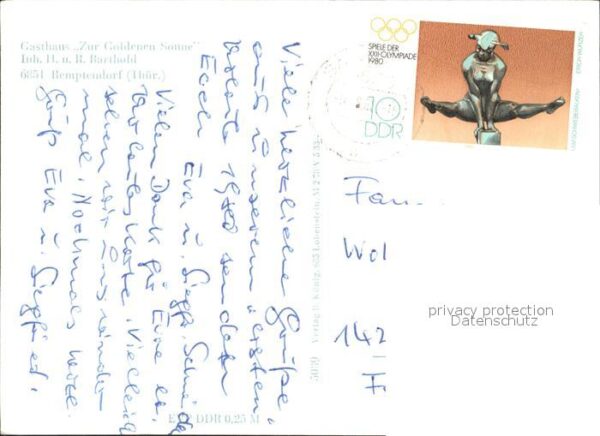 Gasthaus „Zur Goldenen Sonne"
Inh. H. u. R. Barthold
6851 Remptendorf (Thür.)
Viele herzliche Grüße
aus unserem "ersten"
1980 senden
Euch Eva u. Siegfr.
Vielen Dank für Eure
Urlaubskarte. Vielleicht
sehen wir uns wieder
mal. Nochmals herzl.
Grüß Eva u. Siegfried.
5039 Verlag R. König, 685 Lobenstein, M
EVP DDR 0,25 M
SPIELE DER
XXII. OLYMPIADE
1980
10
DDR
ERICH WURZER
Fam...
Wol
142
F
privacy protection
Datenschutz